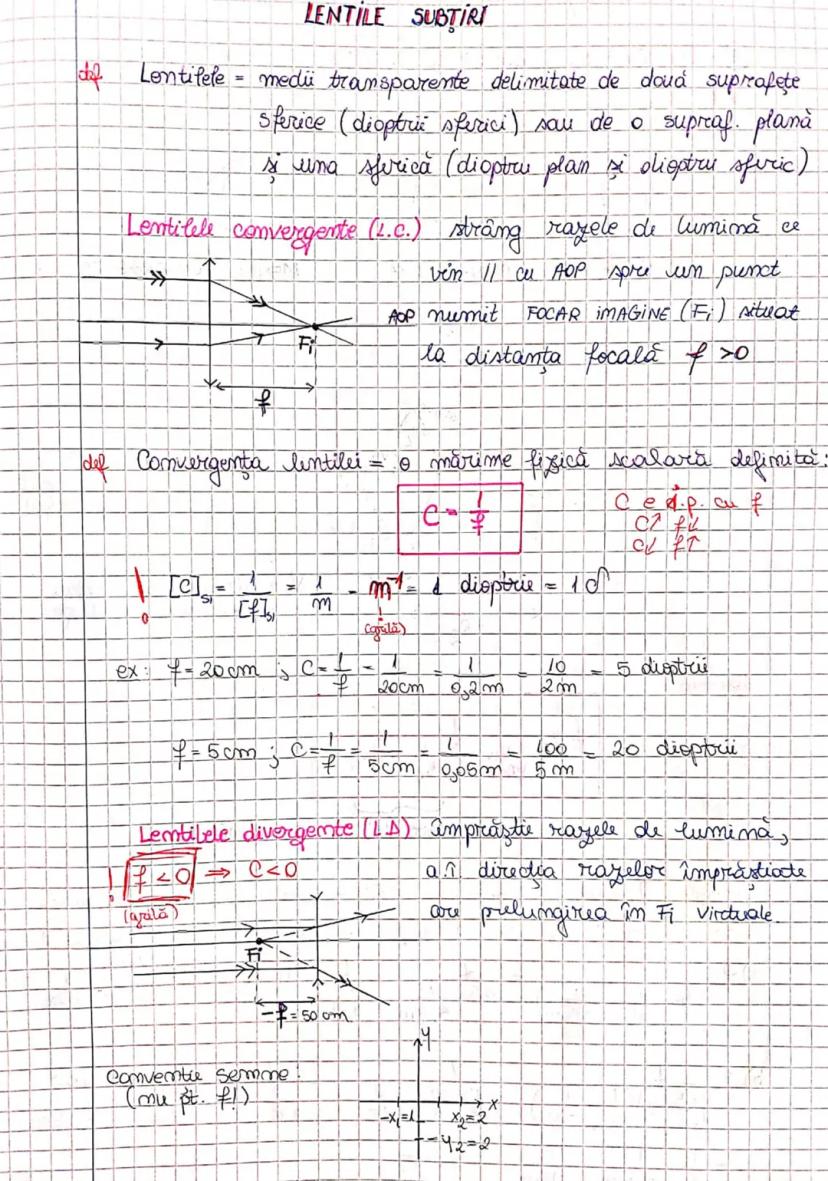 LENTILE SUBȚIRI
def Lentilele = medii transparente delimitate de două suprafețe
sferice (dioptrii sferici) sau de o supraf. plană
și una sferică (dioptru plan și dioptru sferic)
Lentilele convergente (L.C.) strâng razele de lumină ce
vin // cu AOP spre un punct
AOP numit FOCAR IMAGINE (Fi) situat
Fi
la distanța focală f >0
f
def Convergența lentilei = o mărime fizică scalară definită:
C = 1/f
C e i.p. cu f
C↑ f↓
C↓ f↑
! [C]SI = 1/[f]SI = 1/m = m⁻¹ = 1 dioptrie = 1 δ
(grilă)
ex: f = 20cm ; C = 1/f = 1/20cm = 1/0,2m = 10/2m = 5 dioptrii
f = 5cm ; C = 1/f = 1/5cm = 1/0,05m = 100/5m = 20 dioptrii
Lentilele divergente (LD) împrăștie razele de lumină,
! f < 0 ⇒ C < 0
a.î. direcția razelor împrăștiate
(grilă)
are prelungirea în Fi virtuale.
Fi
-f = 50 cm
y
Convenție semne:
(nu pt. f!)
x
-x₁=1 x₂=2
-y₂=2